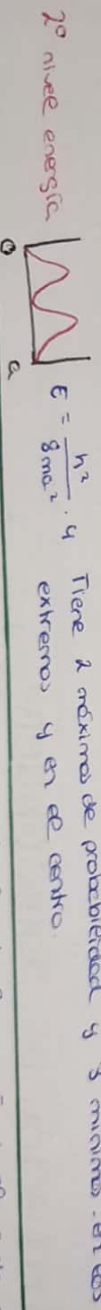 2º nivel energía
E = h²/8ma² · 4
Tiene 2 máximos de probabilidad y 3 mínimos - en los
extremos y en el centro.
0 a